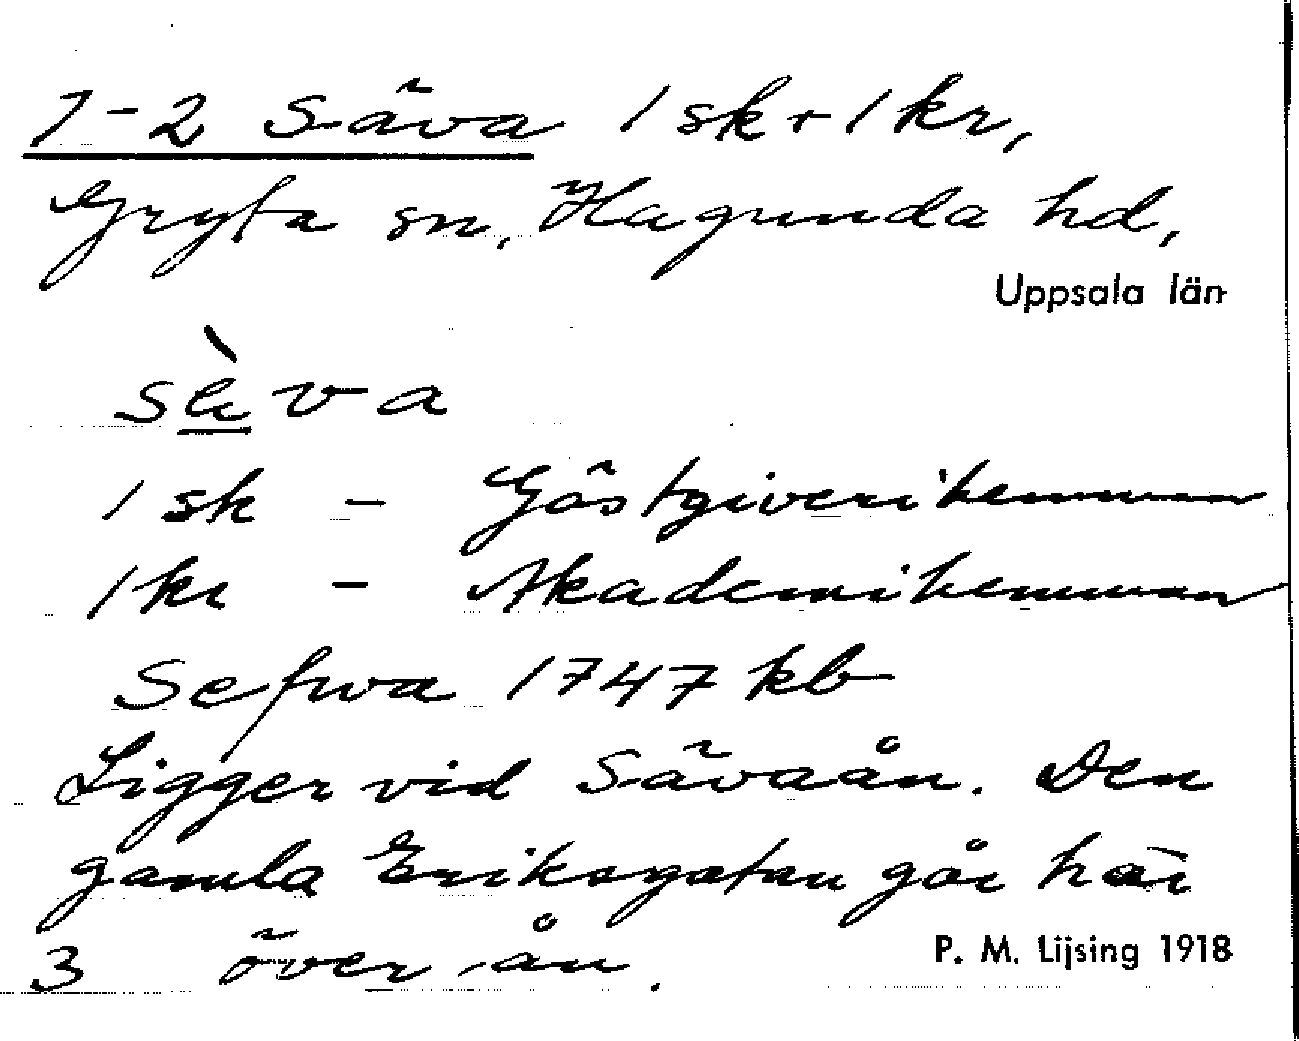 1-2 Säva 1 sk + 1 kr,
Gryta sn, Hagunda hd,
Uppsala län
sèva
1 sk - Gästgiverihemman
1 kr - Akademihemman
Sefwa 1747 kb
Ligger vid Sävaån. Den
gamla Eriksgatan går här
3 över ån.
P. M. Lijsing 1918